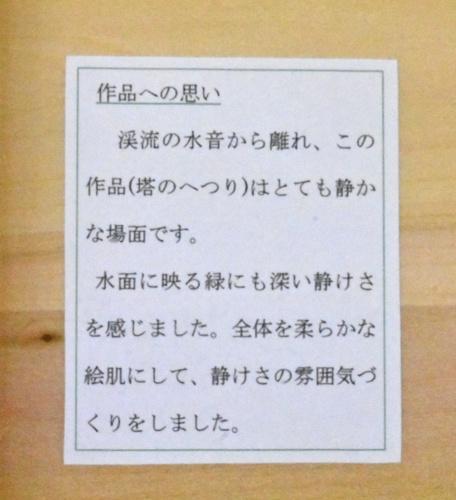 作品への思い
渓流の水音から離れ、この
作品(塔のへつり)はとても静か
な場面です。
水面に映る緑にも深い静けさ
を感じました。全体を柔らかな
絵肌にして、静けさの雰囲気づ
くりをしました。